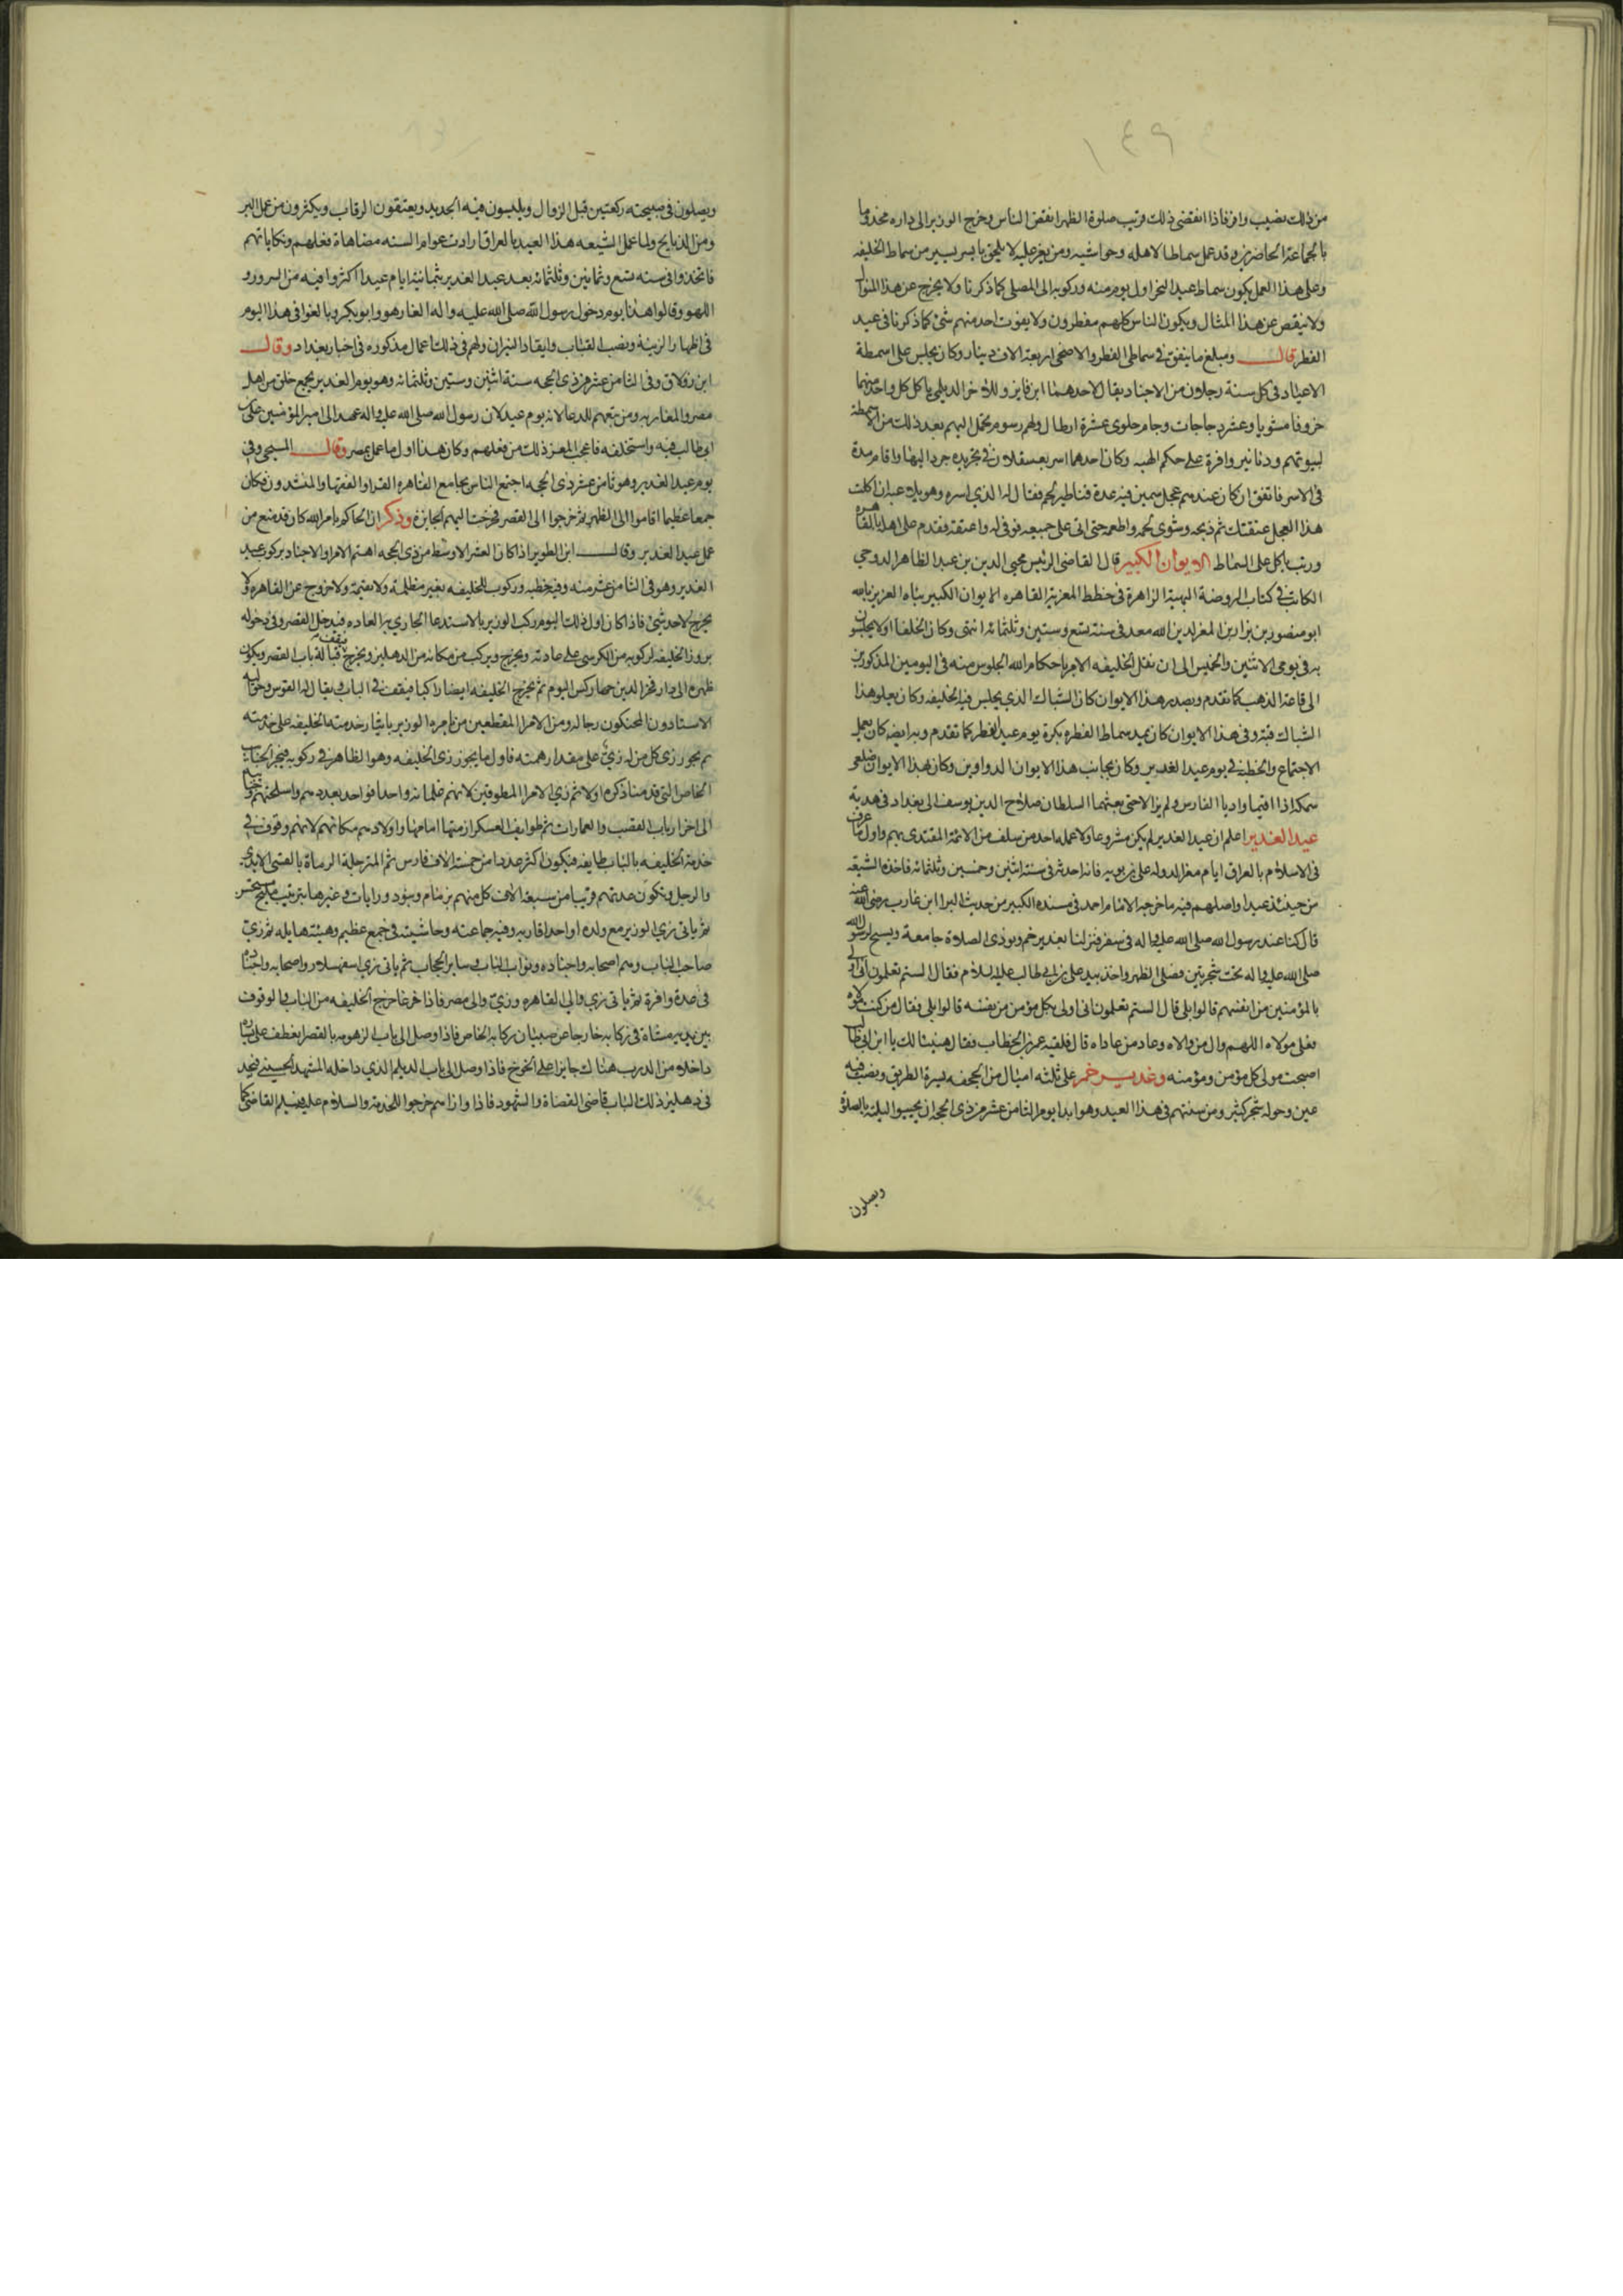 ١٤٩
من ذلك نصيب وافر فاذا انقضى ذلك وقرب صلوة الظهر انفض الناس وخرج الوزير الى داره مخدوما
بالجماعة الحاضرين وقد عمل سماطا لاهله وحواشيه ومن يعز عليه لا يلحق بايسر يسير من سماط الخليفه
وعلى هذا العمل يكون سماط عيد النحر اول يوم منه وركوبه الى المصلى كما ذكرنا ولا يخرج عن هذا المنوال
ولا ينقص عن هذا المثال ويكون الناس كلهم مفطرون ولا يفوت احد منهم شئ كما ذكرنا في عيد
الفطر قال ومبلغ ما ينفق في سماطي الفطر والاضحى اربعة الاف دينار وكان يجلس على اسمطة
الاعياد في كل سنة رجلان من الاجناد يقال لاحدهما ابن فايز وللاخر الديلمي ياكل كل واحد منهما
خروفا مشويا وعشر دجاجات وجام حلوى عشرة ارطال ولهم رسوم تحمل اليهم بعد ذلك من الاسمطة
لبيوتهم ودنانير وافرة على حكم الهبه وكان احدهما اسر بعسقلان في تجريده جرد اليها واقام مدة
في الاسر فاتفق ان كان عندهم عجل سمين فيه عدة قناطير لحم فقال له الذي اسره وهو يداعبه ان اكلت
هذا العجل عتقتك ثم ذبحه وشوى لحمه واطعمه حتى اتى على جميعه فوفى له واعتقه فقدم على اهله بالقاهره
ورتب ياكل على السماط الايوان الكبير قال القاضي الرئيس محيي الدين بن عبد الظاهر الروحي
الكاتب في كتاب الروضة البهية الزاهرة في خطط المعزية القاهره الايوان الكبير بناه العزيز بالله
ابو منصور بن نزار بن المعز لدين الله معد في سنة تسع وستين وثلثمائه انتهى وكان الخلفا اولا يجلسون
به في يومي الاثنين والخميس الى ان نقل الخليفه الامر باحكام الله الجلوس منه في اليومين المذكورين
الى قاعة الذهب كما تقدم وبصدر هذا الايوان كان الشباك الذي يجلس فيه الخليفه وكان يعلو هذا
الشباك قبه وفي هذا الايوان كان يمد سماط الفطره بكرة يوم عيد الفطر كما تقدم وبه ايضه كان يعمل
الاجتماع والخطبة في يوم عيد الغدير وكان بجانب هذا الايوان الدواوين وكان بهذا الايوان ضلعي
سمكه اذا اقيما واريا الفارس ولم يزالا حتى بعثهما السلطان صلاح الدين يوسف الى بغداد في هدية
عيد الغدير اعلم ان عيد الغدير لم يكن مشروعا ولا عمله احد من سلف من الائمة المقتدى بهم واول ما عرف
في الاسلام بالعراق ايام معز الدوله علي بن بويه فانه احدثه في سنة اثنين وخمسين وثلثمائه فاخذه الشيعه
من حينئذ عيدا واصلهم فيه ما خرجه الامام احمد في مسنده الكبير من حديث البرا ابن عازب رضي الله عنه
قال كنا عند رسول الله صلى الله عليه واله في سفر فنزلنا بغدير خم ونودي الصلاة جامعة وبسح لرسول الله
صلى الله عليه واله تحت شجرتين فصلى الظهر واخذ بيد علي بن ابي طالب عليه السلام فقال الستم تعلمون اني اولى
بالمؤمنين من انفسهم قالوا بلى قال الستم تعلمون انى اولى بكل مؤمن من نفسه قالوا بلى فقال من كنت مولاه
فعلي مولاه اللهم وال من والاه وعاد من عاداه قال فلقيه عمر بن الخطاب فقال هنيئا لك يا ابن ابي طالب
اصبحت مولى كل مؤمن ومؤمنه وغدير خم على ثلثه اميال من الجحفه يسرة الطريق ويصب فيه
عين وحوله شجر كثير ومن سنتهم في هذا العيد وهو ابدا يوم الثامن عشر من ذي الحجه ان يحييوا ليلته بالصلاة
ويصلون
ويصلون في صبيحته ركعتين قبل الزوال ويلبسون فيه الجديد ويعتقون الرقاب ويكثرون من عمل البر
ومن الذبايح ولما عمل الشيعه هذا العيد بالعراق ارادت عوام السنه مضاهاة فعلهم ونكاياتهم
فاتخذوا في سنه تسع وثمانين وثلثمائه بعد عيد الغدير بثمانية ايام عيدا اكثروا فيه من السرور و
اللهو وقالوا هذا يوم دخول رسول الله صلى الله عليه واله الغار هو وابو بكر وبالغوا في هذا اليوم
في اظهار الزينة ونصب القباب وايقاد النيران ولهم في ذلك اعمال مذكوره في اخبار بغداد وقال
ابن زولاق وفي الثامن عشر من ذي الحجه سنة اثنين وستين وثلثمائه وهو يوم الغدير يجمع خلق من اهل
مصر والمغاربه ومن تبعهم للدعا لانه يوم عيد لان رسول الله صلى الله عليه واله عهد الى امير المؤمنين علي بن
ابي طالب فيه واستخلفه فاعجب المعز ذلك من فعلهم وكان هذا اول ما عمل بمصر وقال المسبحي وفي
يوم عيد الغدير وهو ثامن عشر ذي الحجه اجتمع الناس بجامع القاهره القرا والفقها والمنشدون فكان
جمعا عظيما اقاموا الى الظهر ثم خرجوا الى القصر فخرجت اليهم الجايزة وذكر ان الحاكم بامر الله كان قد منع من
عمل عيد الغدير وقال ابن الطوير اذا كان العشر الاوسط من ذي الحجه اهتم الامرا والاجناد بركوب عيد
الغدير وهو في الثامن عشر منه وفيه خطبه وركوب الخليفه بغير مظلة ولا يتيمة ولا خروج عن القاهره ولا
يخرج لاحد شئ فاذا كان اول ذلك اليوم ركب الوزير بالاستدعا الجاري به العاده فيدخل القصر وفي دخوله
بروز الخليفه لركوبه من الكرسي على عادته ويخرج ويركب من مكانه من الدهليز ويخرج فيقف قبالة باب القصر ويكون
ظهره الى دار فخر الدين جهاركس اليوم ثم يخرج الخليفه ايضا راكبا فيقف في الباب ويقال له القوس وحواليه
الاستادون المحنكون رجاله ومن الامرا المطوقين من يامره الوزير باشارة خدمته الخليفه على خدمته
ثم يجوز زي كل من له زي على مقدار همته فاول ما يجوز زي الخليفه وهو الظاهر في ركوبه فتجر الجنايب
الخاص التي قدمنا ذكره اولا ثم زي الامرا المطوقين لانهم غلمانه واحدا فواحد بعددهم واسلحتهم وجنايبهم
الى اخر ارباب القصب والعمارات ثم طوايف العسكر ازمتها امامها واولادهم مكانهم لانهم وقوف في
خدمة الخليفه بالباب طايفه فيكون اكثر عددا من خمسة الاف فارس ثم المترجلة الرماة بالقسى الايدي
والرجل وتكون عدتهم قريبا من سبعة الاف كل منهم بزمام وبنود ورايات وغيرها بترتيب مليح حسن
ثم ياتي زي الوزير مع ولده او احد اقاربه وفيه جماعته وحاشيته في جمع عظيم وهيئة هايله ثم زي
صاحب الباب وهم اصحابه واجناده ونواب الباب وساير الحجاب ثم ياتى زي اسفهسلار واصحابه واجناده
في عدة وافرة ثم ياتي زي والي القاهره وزي والي مصر فاذا فرغا خرج الخليفه من الباب والوقوف
بين يديه مشاة في ركابه خارجا عن صبيان ركابه الخاص فاذا وصل الى باب الزهومه بالقصر انعطف على يساره
داخلا من الدرب هناك جايزا على الخوخ فاذا وصل الى باب الديلم الذي داخله المشهد الحسيني فيجد
في دهليز ذلك الباب قاضي القضاة والشهود فاذا وازاهم خرجوا للخدمة والسلام عليه فيسلم القاضي كما